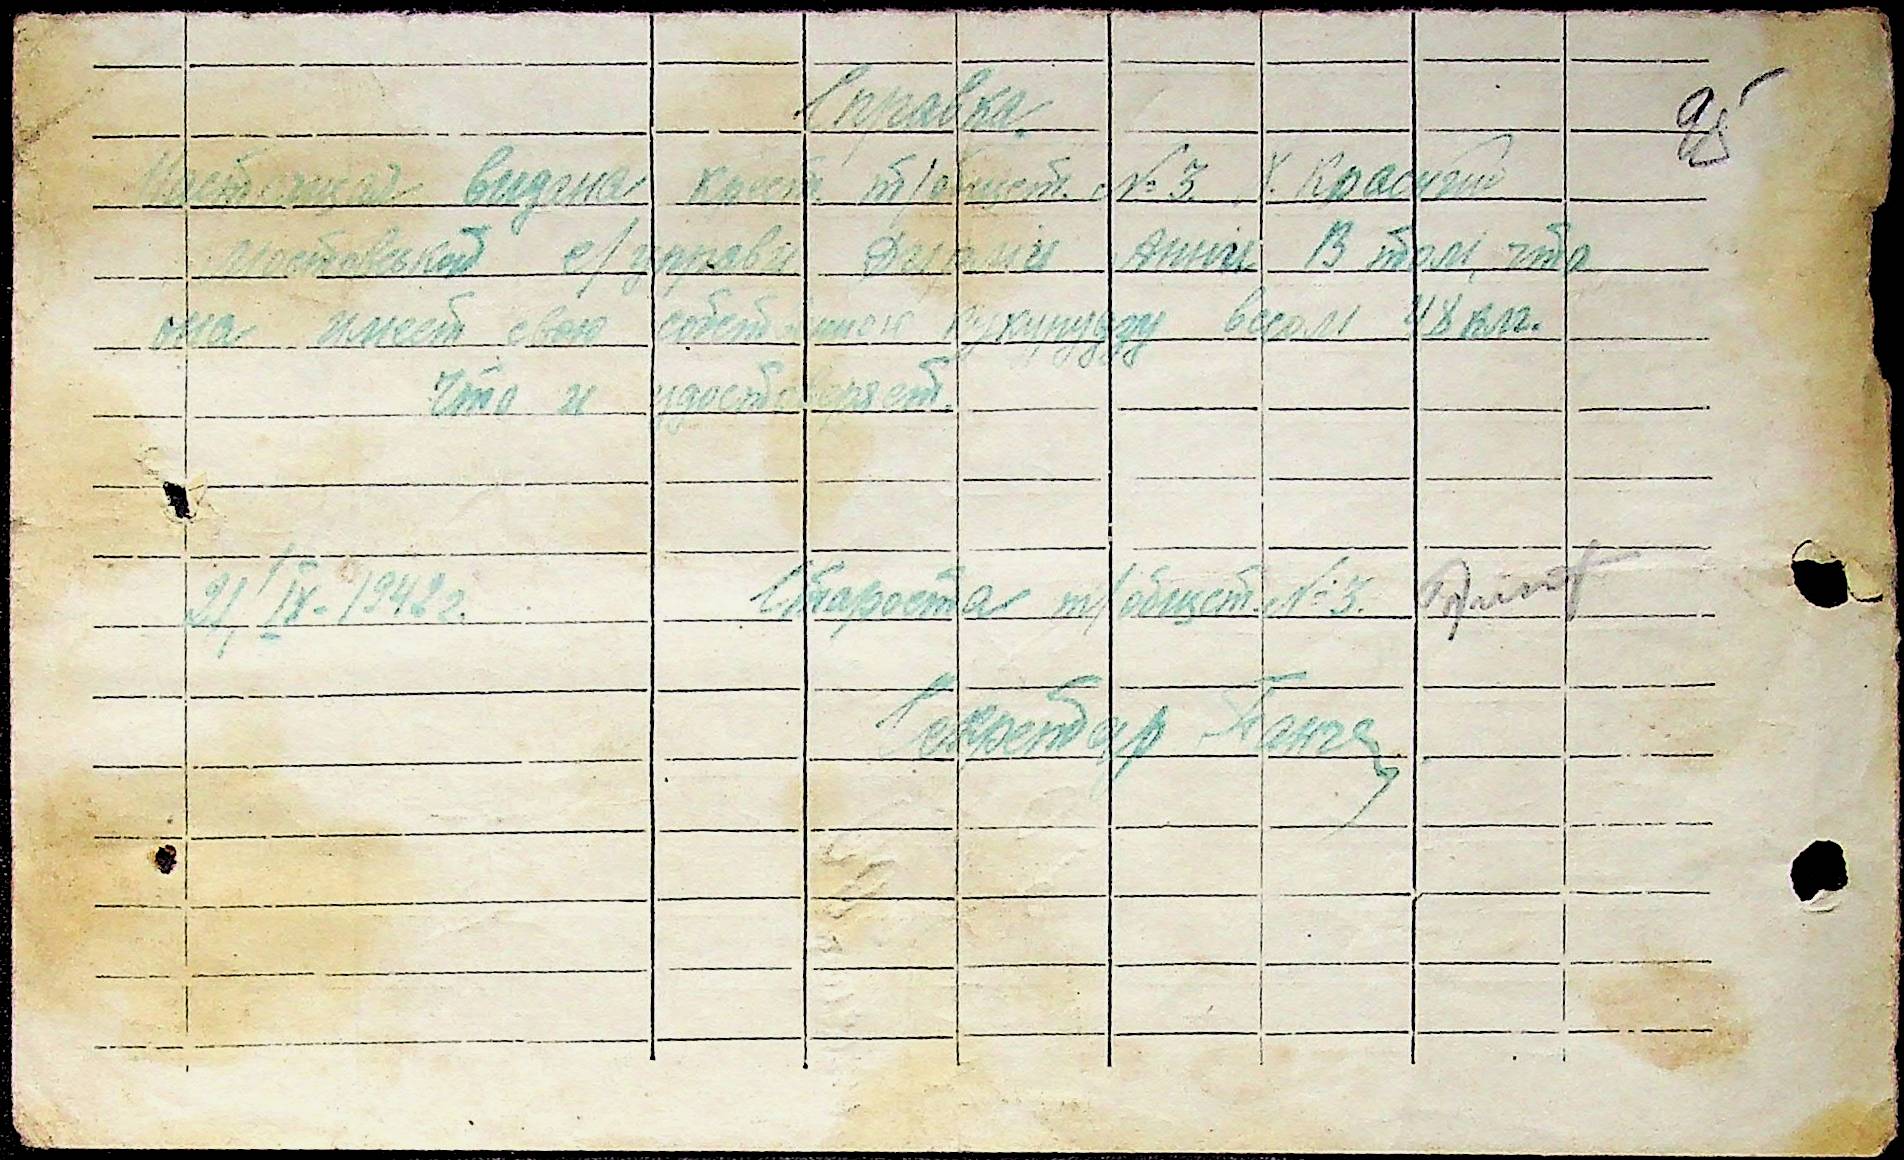 95
Справка
Настоящая выдана крест. т/общест. №3 х. Красный
мостовський с/управи Анни В том, что
она имеет свою собственою кукурузу весом 48 клг.
Что и удостоверяет.
21/IX-1942 г. Староста т/общест. №3.
Секретарь